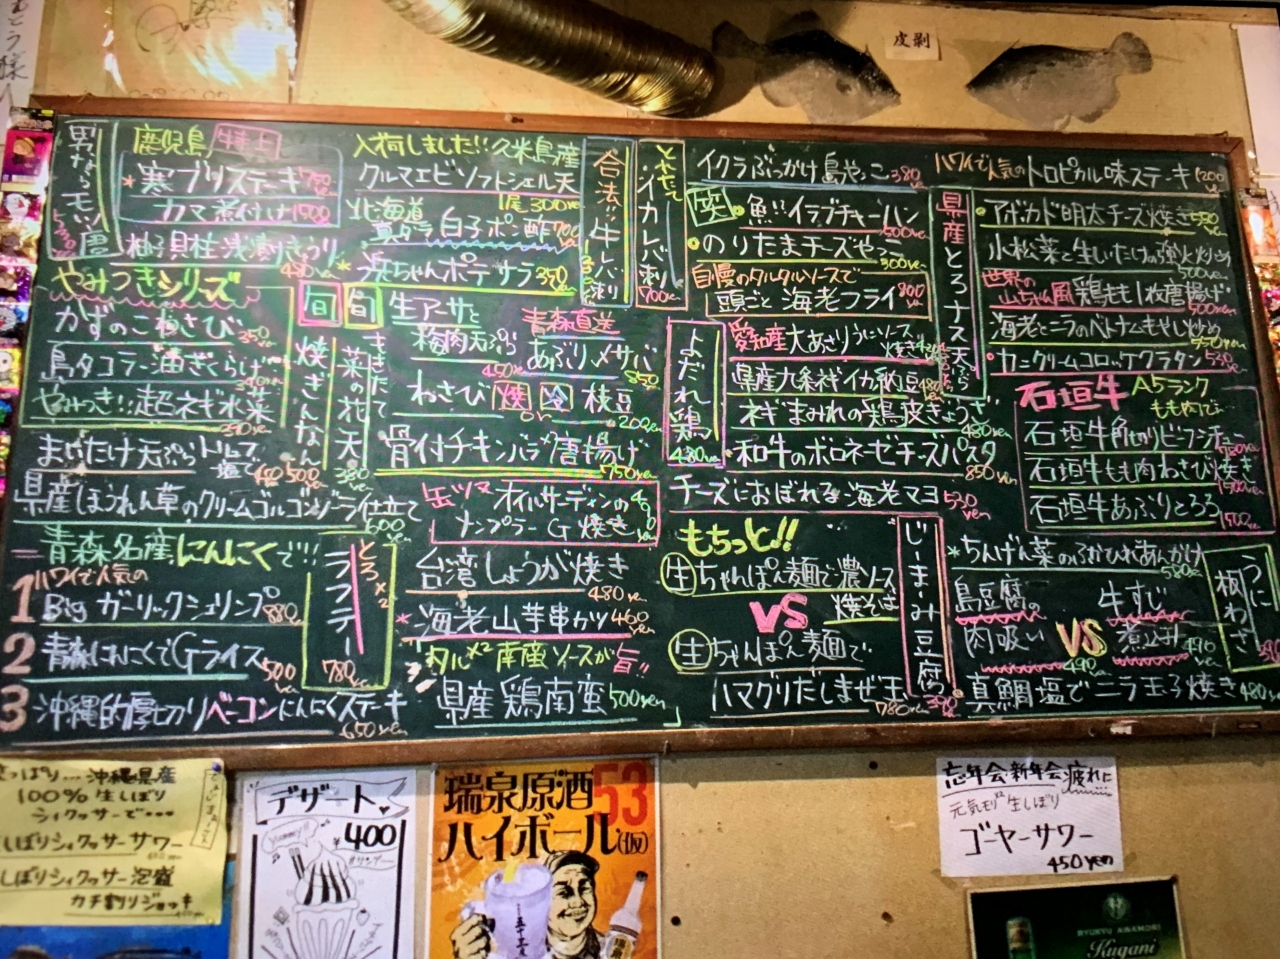 皮剥
男なるモツ唐
鹿児島 特上
寒ブリステーキ 750yen
カマ煮付け 1500
柚子貝柱浅漬きゅうり
480yen
入荷しました!!久米島産
クルマエビソフトシェル天
1尾300yen
北海道
真ダラ白子ポン酢 700yen
島ちゃんポテサラ 350yen
合法!!牛レバ刺
とれたてイカレバ刺
700yen
やみつきシリーズ
かずのこわさび
350yen
島タコラー油ぎくらげ
やみつき!!超ネギ水菜
旬
焼ぎんなん
旬
さきたて菜の花天
380yen
生アーサと
梅肉天ぷら
450yen
青森直送
あぶり〆サバ
850
わさび 焼 or 冷 枝豆
200yen
骨付チキンバラ唐揚げ
750yen
まいたけ天ぷら
塩で
県産ほうれん草のクリームゴルゴンゾーラ仕立て
600yen
缶ツマ オイルサーディンの
ナンプラーG焼き
青森名産にんにくで!!
ハワイで人気の
1 Bigガーリックシュリンプ
880yen
2 青森にんにくでGライス
500yen
3 沖縄的厚切りベーコンにんにくステーキ
650yen
とろ×2
ラフテー
780yen
台湾しょうが焼き
480yen
海老山芋串かツ 460yen
タル×2 南蛮ソースが旨!!
県産鶏南蛮 500yen
イクラぶっかけ島やっこ 380yen
魚!!イラブチャーハン
500yen
のりたまチーズやっこ
300yen
自慢のタルタルソースで
頭ごと海老フライ 800yen
よだれ鶏
480yen
愛知産大あさりうにソース
焼き
県産九条ネギイカ納豆 480yen
ネギまみれの鶏皮ぎょうざ
480yen
和牛のボロネーゼチーズパスタ
850yen
チーズにおぼれる海老マヨ 530yen
もちっと!!
生ちゃんぽん麺で濃ソース
焼そば
VS
生ちゃんぽん麺で
ハマグリだしまぜ玉
780yen
じーまーみ豆腐
ハワイで人気のトロピカル味ステーキ 1200yen
県産とろナス天ぷら
アボカド明太チーズ焼き
小松菜と生しいたけの強火炒め
500yen
世界の
山ちゃん風 鶏もも1枚唐揚げ
500yen
海老とニラのベトナムもやし炒め
550yen
カニクリームコロッケグラタン 530yen
石垣牛 A5ランク
もも肉で
石垣牛角切りビーフシチュー
石垣牛もも肉わさび焼き
石垣牛あぶりとろろ
ちんげん菜のふかひれあんかけ
島豆腐の
肉吸い 490yen
VS
牛すじ
煮込み 490yen
うに板わさ
真鯛塩でニラ玉子焼き 480yen
さっぱり…沖縄県産
100%生しぼり
シィクヮサーで…
しぼりシィクヮサーサワー
しぼりシィクヮサー泡盛
カチ割りジョッキ
デザート
yummy!!
¥400
瑞泉原酒53
ハイボール(仮)
忘年会新年会疲れに
元気モリ×2 生しぼり
ゴーヤーサワー
450yen
RYUKYU AWAMORI
Kugani